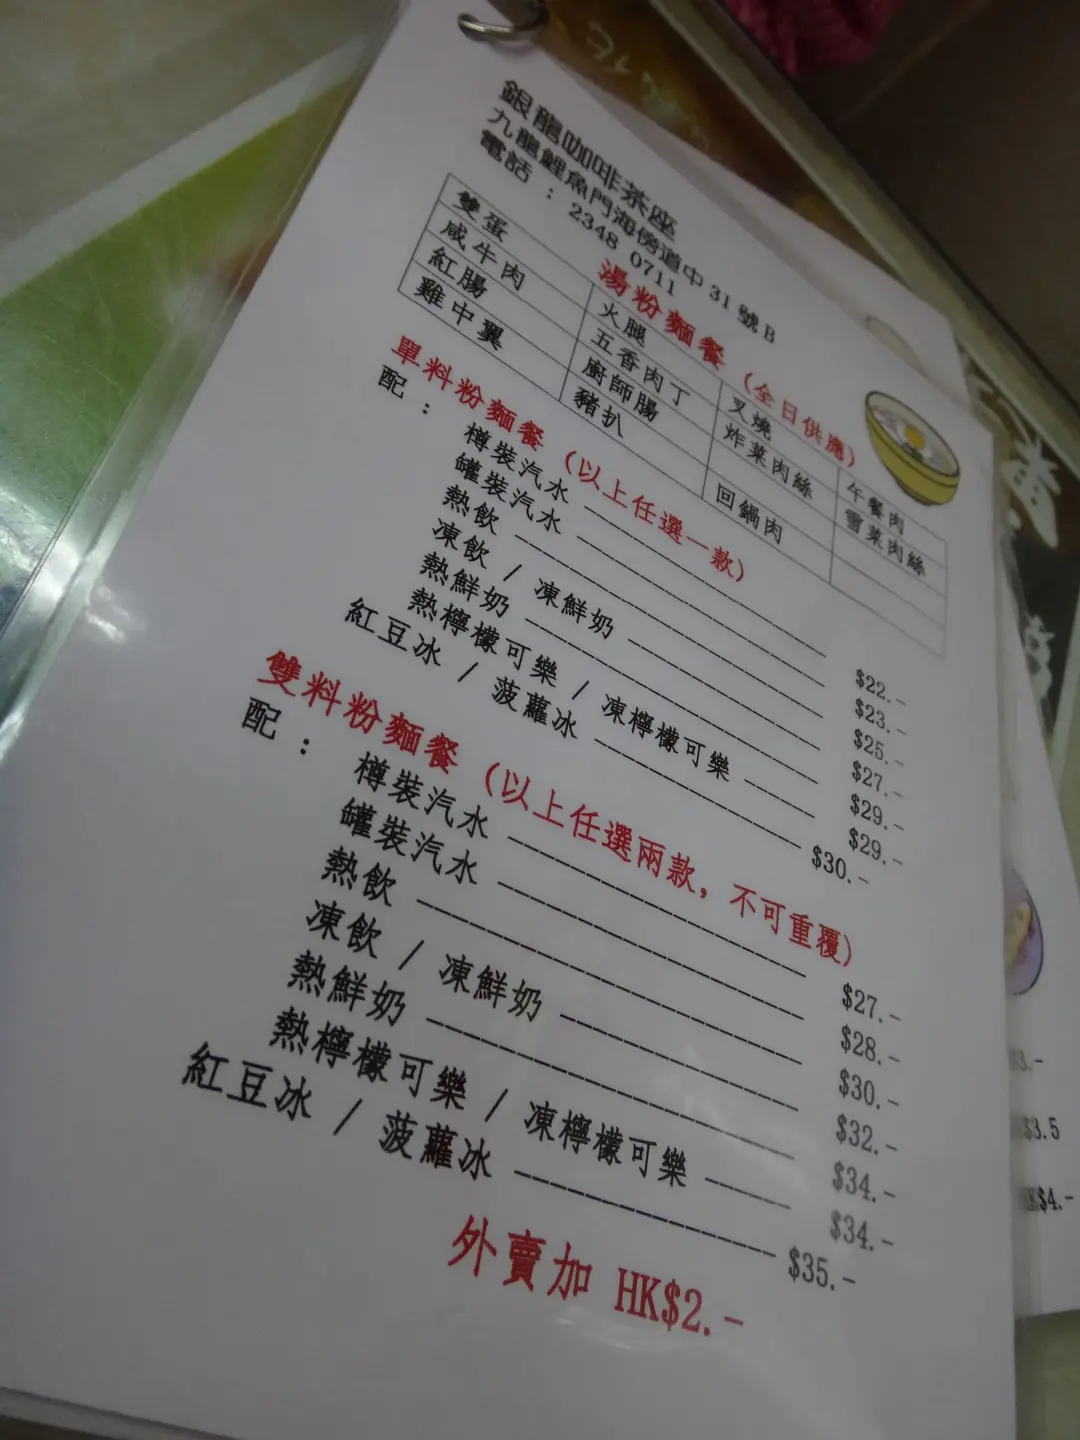 銀龍咖啡茶座
九龍鯉魚門海傍道中 31 號 B
電話 : 2348 0711
湯粉麵餐 (全日供應)
雙蛋 火腿 叉燒 午餐肉
咸牛肉 五香肉丁 炸菜肉絲 雪菜肉絲
紅腸 廚師腸
雞中翼 豬扒 回鍋肉
單料粉麵餐 (以上任選一款)
配 :
樽裝汽水 $22.-
罐裝汽水 $23.-
熱飲 $25.-
凍飲 / 凍鮮奶 $27.-
熱鮮奶 $29.-
熱檸檬可樂 / 凍檸檬可樂 $29.-
紅豆冰 / 菠蘿冰 $30.-
雙料粉麵餐 (以上任選兩款, 不可重覆)
配 :
樽裝汽水 $27.-
罐裝汽水 $28.-
熱飲 $30.-
凍飲 / 凍鮮奶 $32.-
熱鮮奶 $34.-
熱檸檬可樂 / 凍檸檬可樂 $34.-
紅豆冰 / 菠蘿冰 $35.-
外賣加 HK$2.-
$3.5
$4.-